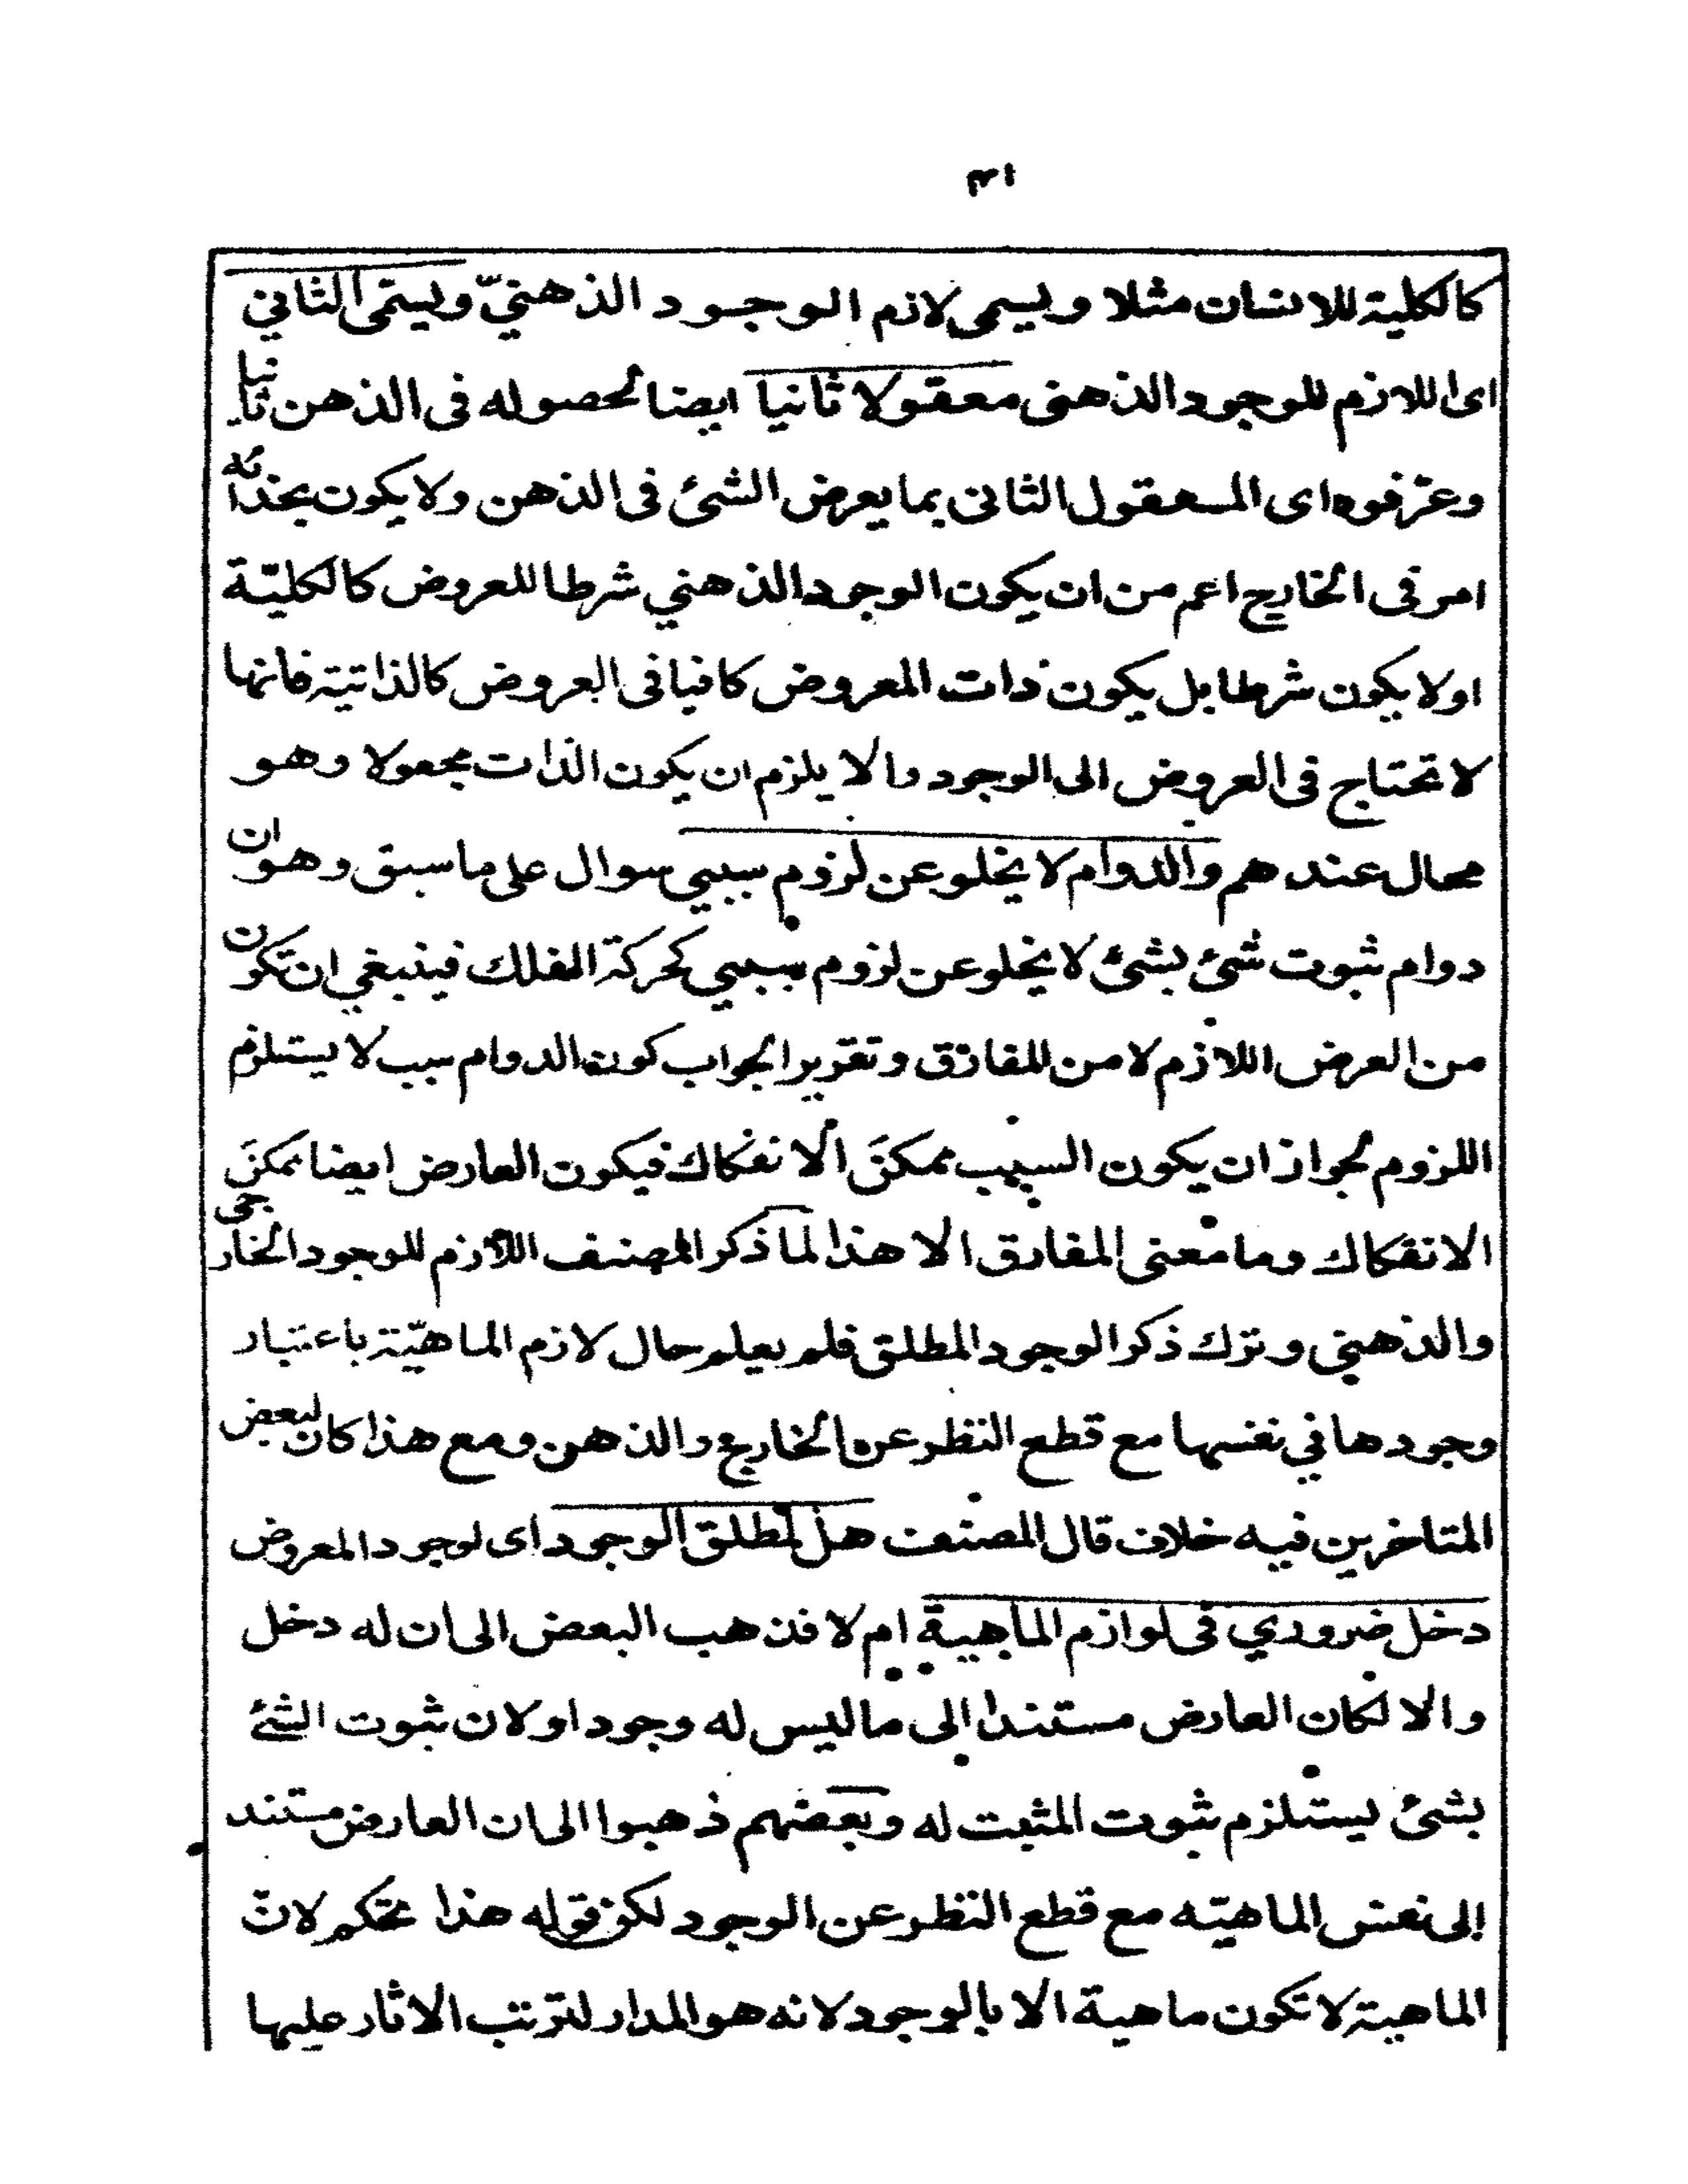 كالكلية للانسان مثلا ويسمى لازم الوجود الذهنيّ ويسمّى الثاني
اى اللازم للوجود الذهنى معقولا ثانيا ايضا لحصوله فى الذهن ثانيا
وعرّفوه اى المعقول الثانى بما يعرض الشئ فى الذهن ولا يكون بحذائه
امر فى الخارج اعم من ان يكون الوجود الذهني شرطا للعروض كالكليّة
او لا يكون شرطا بل يكون ذات المعروض كافيا فى العروض كالذاتية فانها
لا تحتاج فى العروض الى الوجود والا يلزم ان يكون الذات مجعولا وهو
محال عندهم والدوام لا يخلو عن لزوم سببي سوال على ما سبق وهو ان
دوام ثبوت شئ بشئ لا يخلو عن لزوم سببي كحركة الفلك فينبغي ان تكون
من العرض اللازم لا من المفارق وتقرير الجواب كون الدوام سبب لا يستلزم
اللزوم لجواز ان يكون السبب ممكنَ الانفكاك فيكون العارض ايضا ممكنَ
الانفكاك وما معنى المفارق الا هذا لما ذكر المصنف اللازم للوجود الخارجى
والذهني وترك ذكر الوجود المطلق فلم يعلم حال لازم الماهيّة باعتبار
وجودها في نفسها مع قطع النظر عن الخارج والذهن ومع هذا كان لبعض
المتاخرين فيه خلاف قال المصنف هل لمطلق الوجود اى لوجود المعروض
دخل ضروري فى لوازم الماهية ام لا فذهب البعض الى ان له دخل
والا لكان العارض مستندا الى ما ليس له وجود اولان ثبوت الشئ
بشئ يستلزم ثبوت المثبت له وبعضهم ذهبوا الى ان العارض مستند
الى نفس الماهيّه مع قطع النظر عن الوجود لكن قوله هذا تحكم لان
الماهية لا تكون ماهية الا بالوجود لانه هو المدار لترتب الاثار عليها